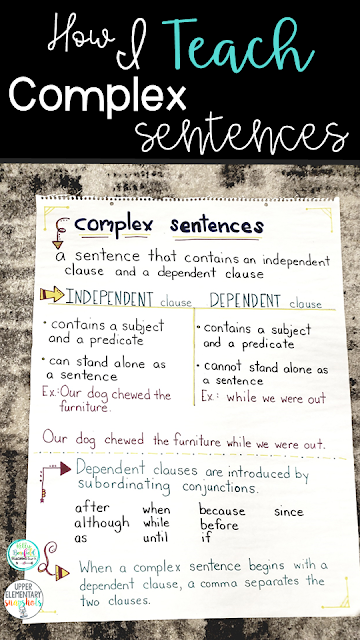 How I Teach
Complex
sentences
complex sentences
a sentence that contains an independent
clause and a dependent clause
INDEPENDENT clause DEPENDENT clause
• contains a subject
and a predicate
• can stand alone as
a sentence
Ex: Our dog chewed the
furniture.
• contains a subject
and a predicate
• cannot stand alone as
a sentence
Ex: while we were out
Our dog chewed the furniture while we were out.
Dependent clauses are introduced by
subordinating conjunctions.
after when because since
although while before
as until if
When a complex sentence begins with a
dependent clause, a comma separates the
two clauses.
UPPER
ELEMENTARY
snapshots